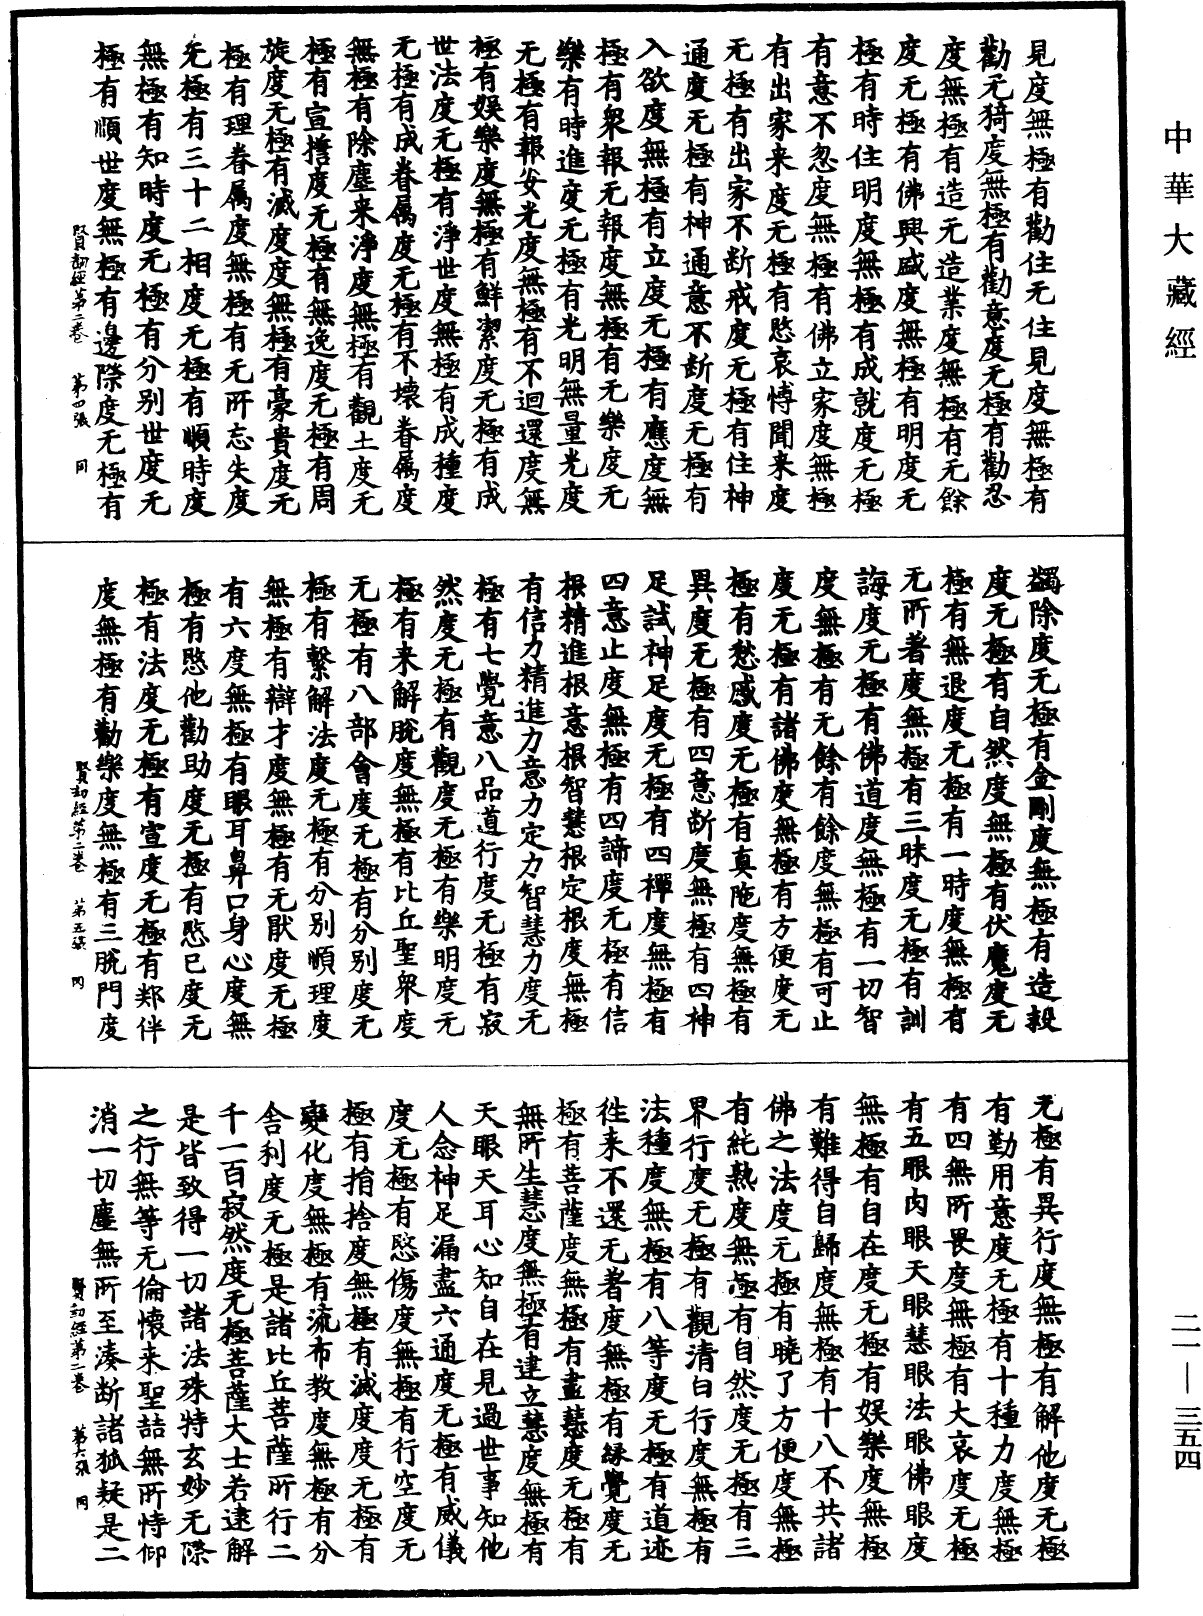 中華大藏經
見度無極有勸住无住見度無極有
勸无猗度無極有勸意度无極有勸忍
度無極有造无造業度無極有无餘
度无極有佛興盛度無極有明度无
極有時住明度無極有成就度无極
有意不忽度無極有佛立家度無極
有出家来度无極有愍哀愽聞来度
无極有出家不断戒度无極有住神
通度无極有神通意不断度无極有
入欲度無極有立度无極有應度無
極有衆報无報度無極有无樂度无
樂有時進度无極有光明無量光度
无極有報安光度無極有不迴還度無
極有娛樂度無極有鮮潔度无極有成
世法度无極有淨世度無極有成種度
无極有成眷属度无極有不壞眷属度
無極有除塵来淨度無極有觀土度无
極有宣擔度无極有無逸度无極有周
旋度无極有滅度度無極有豪貴度无
極有理眷属度無極有无所忘失度
无極有三十二相度无極有順時度
無極有知時度无極有分别世度无
極有順世度無極有邊際度无極有
賢劫經第二卷 第四張 冈
蠲除度无極有金剛度無極有造毀
度无極有自然度無極有伏魔度无
極有無退度无極有一時度無極有
无所著度無極有三昧度无極有訓
誨度无極有佛道度無極有一切智
度無極有无餘有餘度無極有可止
度无極有諸佛度無極有方便度无
極有愁慼度无極有真陁度無極有
異度无極有四意断度無極有四神
足試神足度无極有四禪度無極有
四意止度無極有四諦度无極有信
根精進根意根智慧根定根度無極
有信力精進力意力定力智慧力度无
極有七覺意八品道行度无極有寂
然度无極有觀度无極有樂明度无
極有来解脫度無極有比丘聖衆度
无極有八部會度无極有分别度无
極有繫解法度无極有分别順理度
無極有辯才度無極有无猒度无極
有六度無極有眼耳鼻口身心度無
極有愍他勸助度无極有愍已度无
極有法度无極有宣度无極有郑伴
度無極有勸樂度無極有三脫門度
賢劫經第二卷 第五張 冈
无極有異行度無極有解他度无極
有勤用意度无極有十種力度無極
有四無所畏度無極有大哀度无極
有五眼肉眼天眼慧眼法眼佛眼度
無極有自在度无極有娛樂度無極
有難得自歸度無極有十八不共諸
佛之法度无極有曉了方便度無極
有純熟度無極有自然度无極有三
界行度无極有觀清白行度無極有
法種度無極有八等度无極有道迹
往来不還无著度無極有緣覺度无
極有菩薩度無極有盡慧度无極有
無所生慧度無極有建立慧度無極有
天眼天耳心知自在見過世事知他
人念神足漏盡六通度无極有威儀
度无極有愍傷度無極有行空度无
極有捐捨度無極有滅度度无極有
變化度無極有流布教度無極有分
舍利度无極是諸比丘菩薩所行二
千一百寂然度无極菩薩大士若逮解
是皆致得一切諸法殊特玄妙无際
之行無等无倫懷来聖喆無所恃仰
消一切塵無所至湊断諸狐疑是二
賢劫經第二卷 第六張 冈
二一—三五四